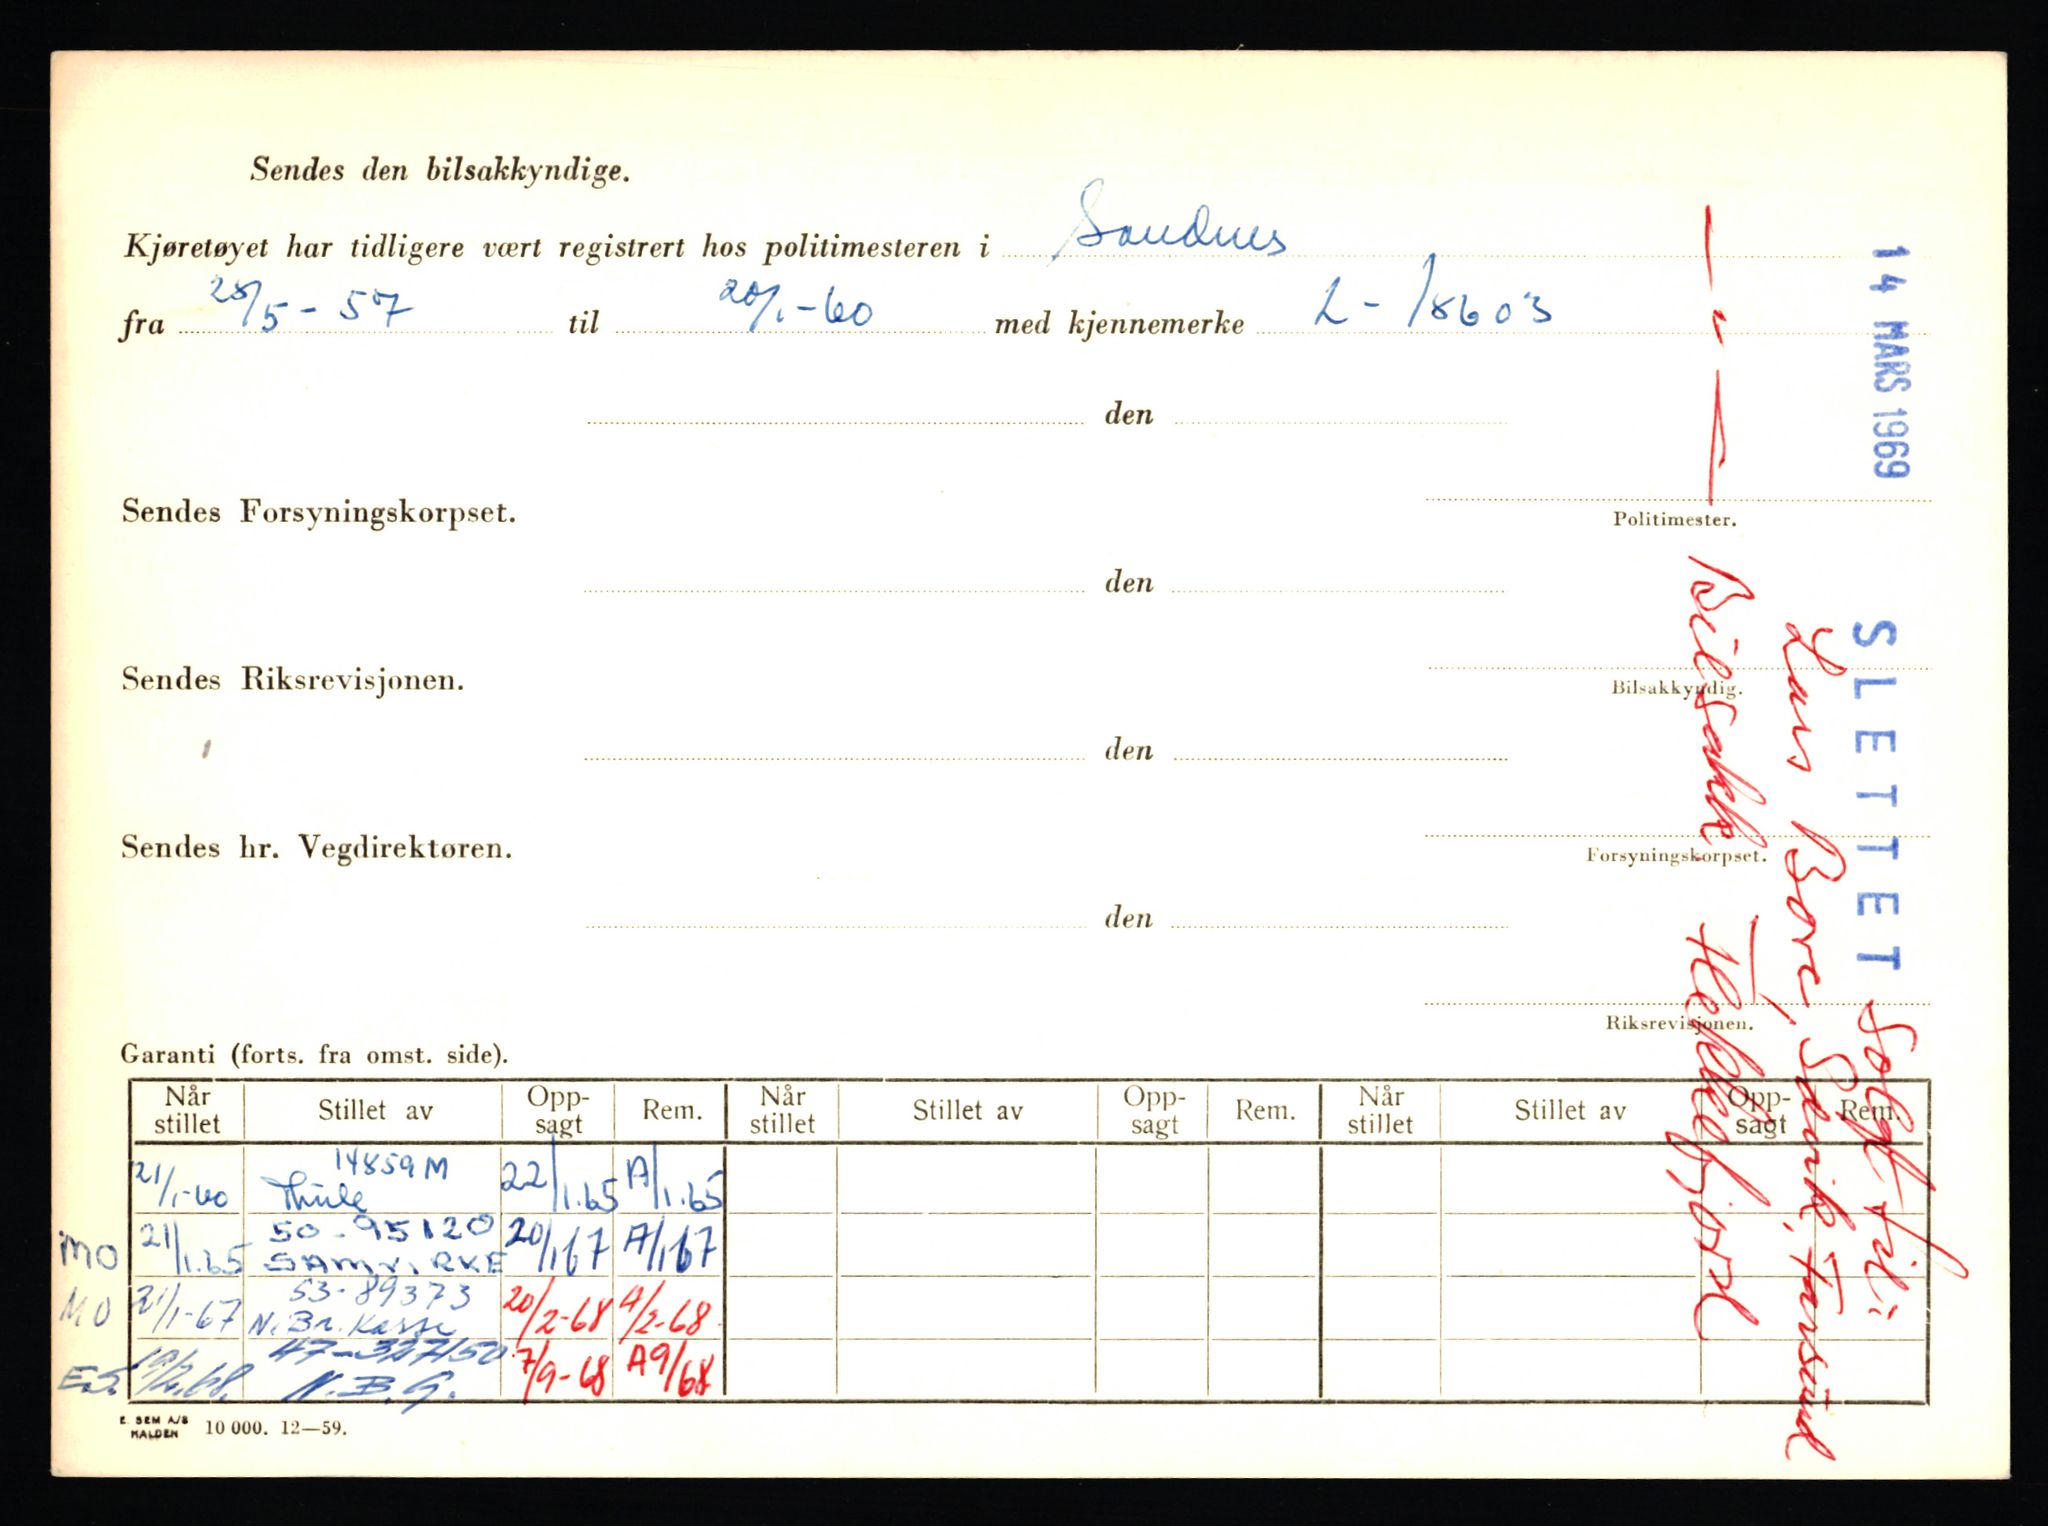 Sendes den bilsakkyndige.
Kjøretøyet har tidligere vært registrert hos politimesteren i Sandnes
fra 28/5-57 til 20/1-60 med kjennemerke L-18603
den
Sendes Forsyningskorpset.
Politimester.
den
Sendes Riksrevisjonen.
Bilsakkyndig.
den
Sendes hr. Vegdirektøren.
Forsyningskorpset.
den
Riksrevisjonen.
14 MARS 1969
SLETTET
Solgt til:
Lars Bore, Farsund
Bilsakk Flekkefjord
Garanti (forts. fra omst. side).
Når stillet Stillet av Opp-sagt Rem. Når stillet Stillet av Opp-sagt Rem. Når stillet Stillet av Opp-sagt Rem.
21/1-60 14859M Thule 22/1.65 A/1.65
MO 21/1.65 50-95120 SAMVIRKE 20/1 67 A/1 67
MO 21/1-67 53-89373 N.Br.Kasse 20/2-68 A/2-68
E.S. 19/2.68. 47-327150 N.B.G. 7/9-68 A9/68
E. SEM A/S HALDEN 10 000. 12—59.